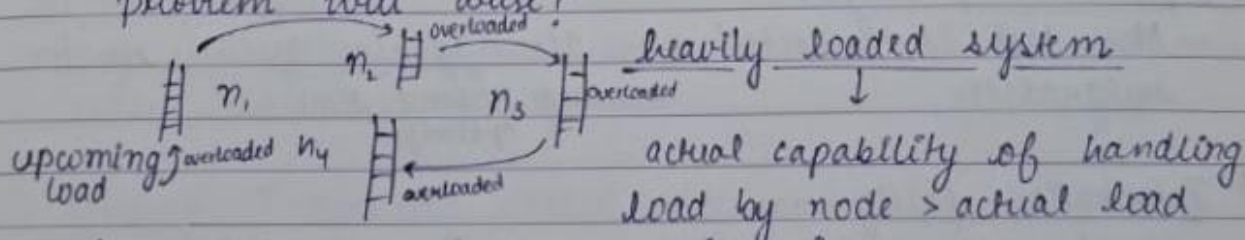 problem will arise!
overloaded
n₂
heavily loaded system
n₁
n₃
overloaded
upcoming load
overloaded
n₄
overloaded
actual capabllity of handling
load by node > actual load